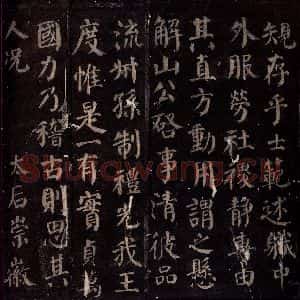 規存乎士範述職中
外服勞社稷靜專由
其直方動用謂之懸
解山公啓事清彼品
流叔孫制禮光我王
度惟是一有實貞萬
國力乃稽古則思其
人況 太后崇徽
Shufawang.cn